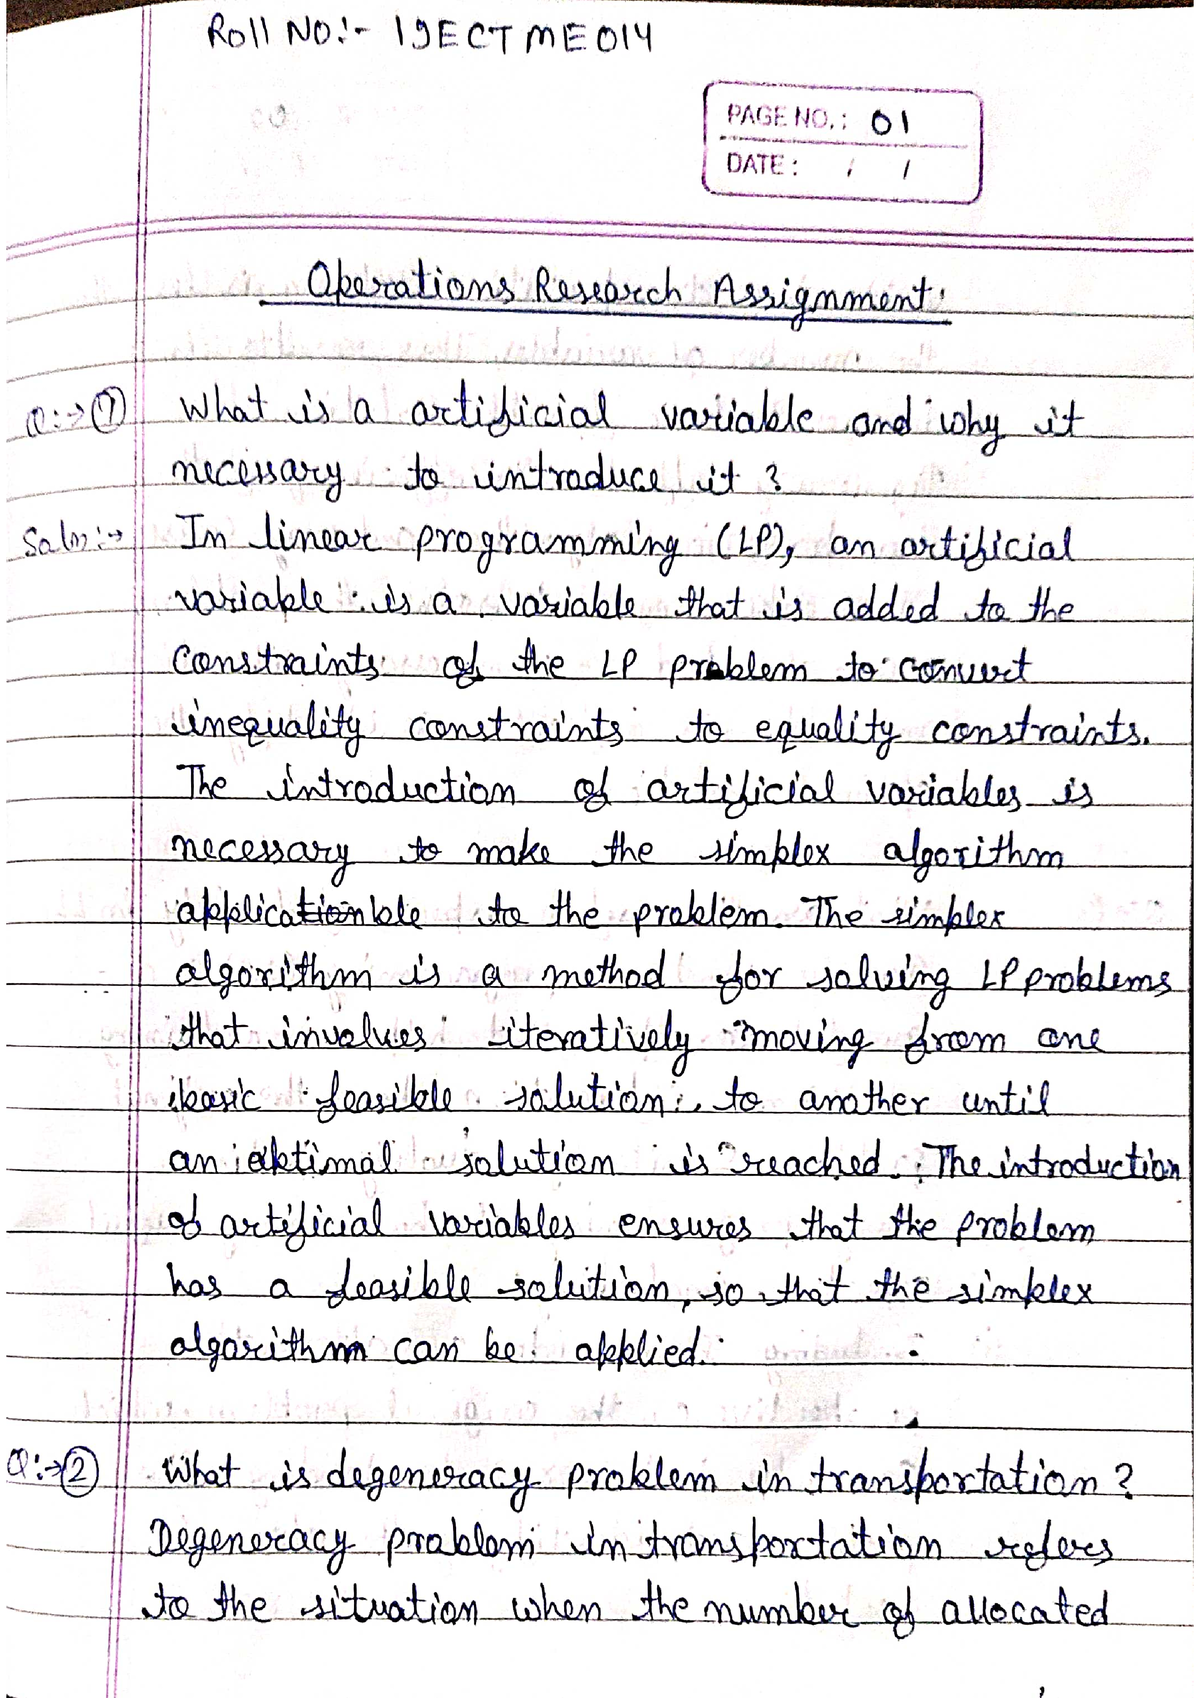 Roll NO:- 19ECTME014
PAGE NO.: 01
DATE: / /
Operations Research Assignment.
Q:→ 1 What is a artificial variable and why it
necessary to introduce it ?
Soln:→ In linear programming (LP), an artificial
variable is a variable that is added to the
constraints of the LP problem to convert
inequality constraints to equality constraints.
The introduction of artificial variables is
necessary to make the simplex algorithm
applicationble to the problem. The simplex
algorithm is a method for solving LP problems
that involves iteratively moving from one
basic feasible solution to another until
an optimal solution is reached. The introduction
of artificial variables ensures that the problem
has a feasible solution, so that the simplex
algorithm can be applied.
Q:→ 2 What is degeneracy problem in transportation ?
Degeneracy problem in transportation refers
to the situation when the number of allocated